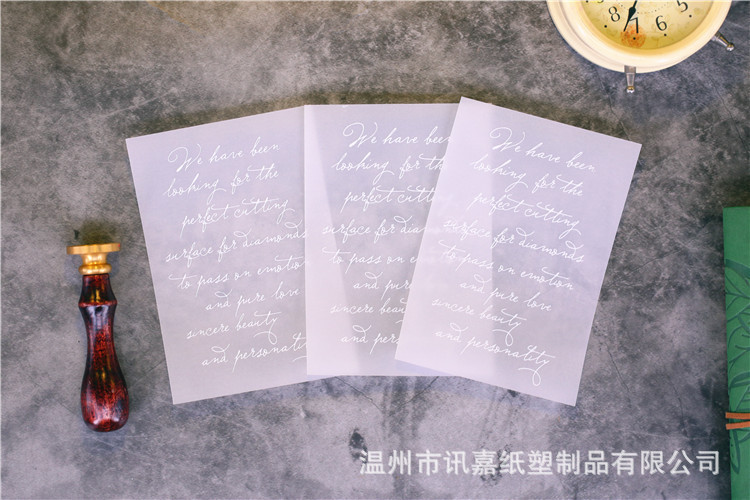 8
7
6
5
We have been
looking for the
perfect cutting
surface for diamonds
to pass on emotion
and pure love
sincere beauty
and personality
We have been
looking for the
perfect c
surface for dia
to pass on e
and pu
sincere b
and pers
We have been
looking for the
perfect cutting
surface for diamonds
to pass on emotion
and pure love
sincere beauty
and personality
温州市讯嘉纸塑制品有限公司